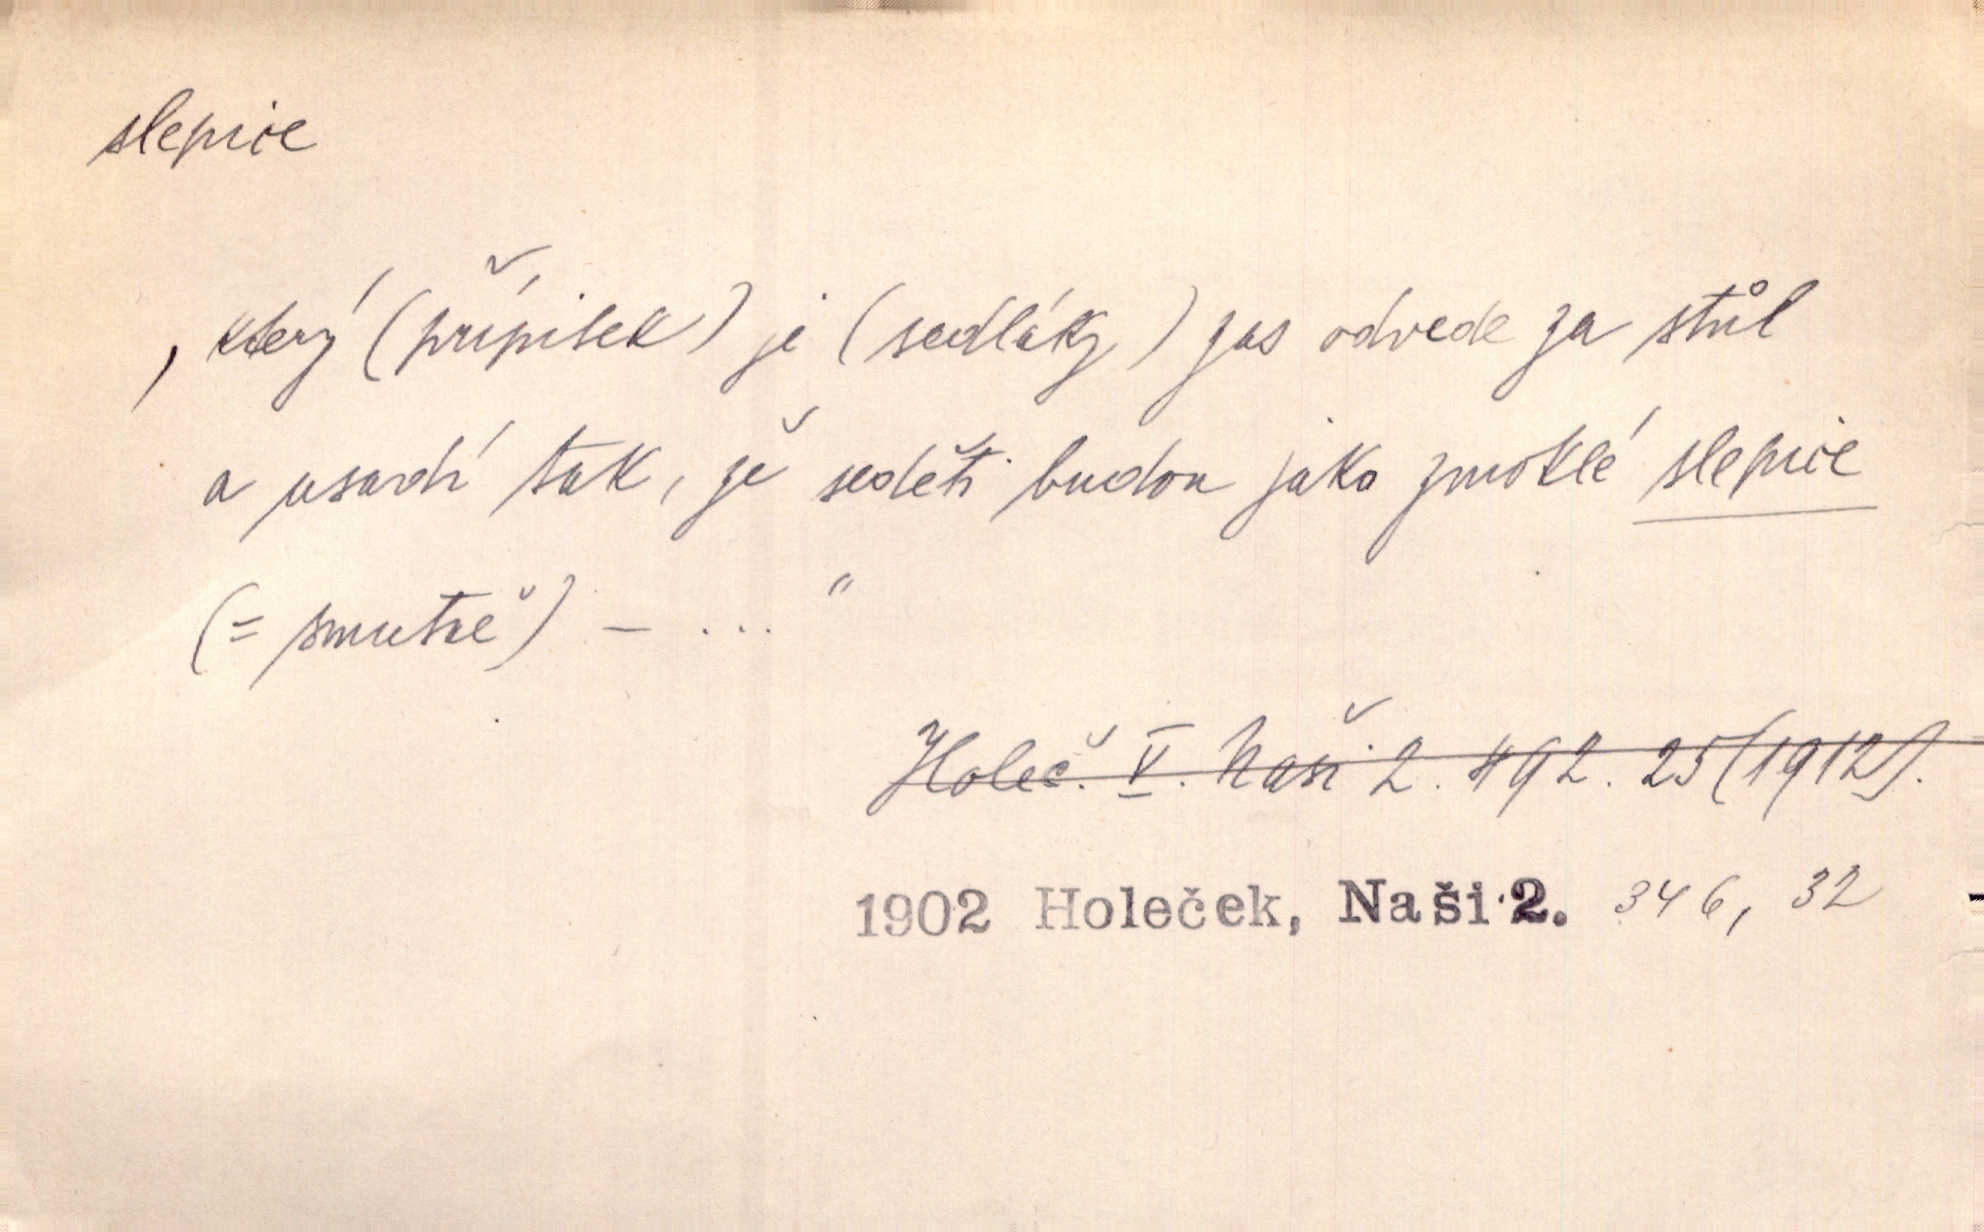 slepice
, který (přípisek) je (sedláky) zas odvede za stůl
a usadí tak, že seděti budou jako zmoklé slepice
(= smutně) – ... "
Holeč. V. Naši 2. 492. 25 (1912).
1902 Holeček, Naši 2. 346, 32